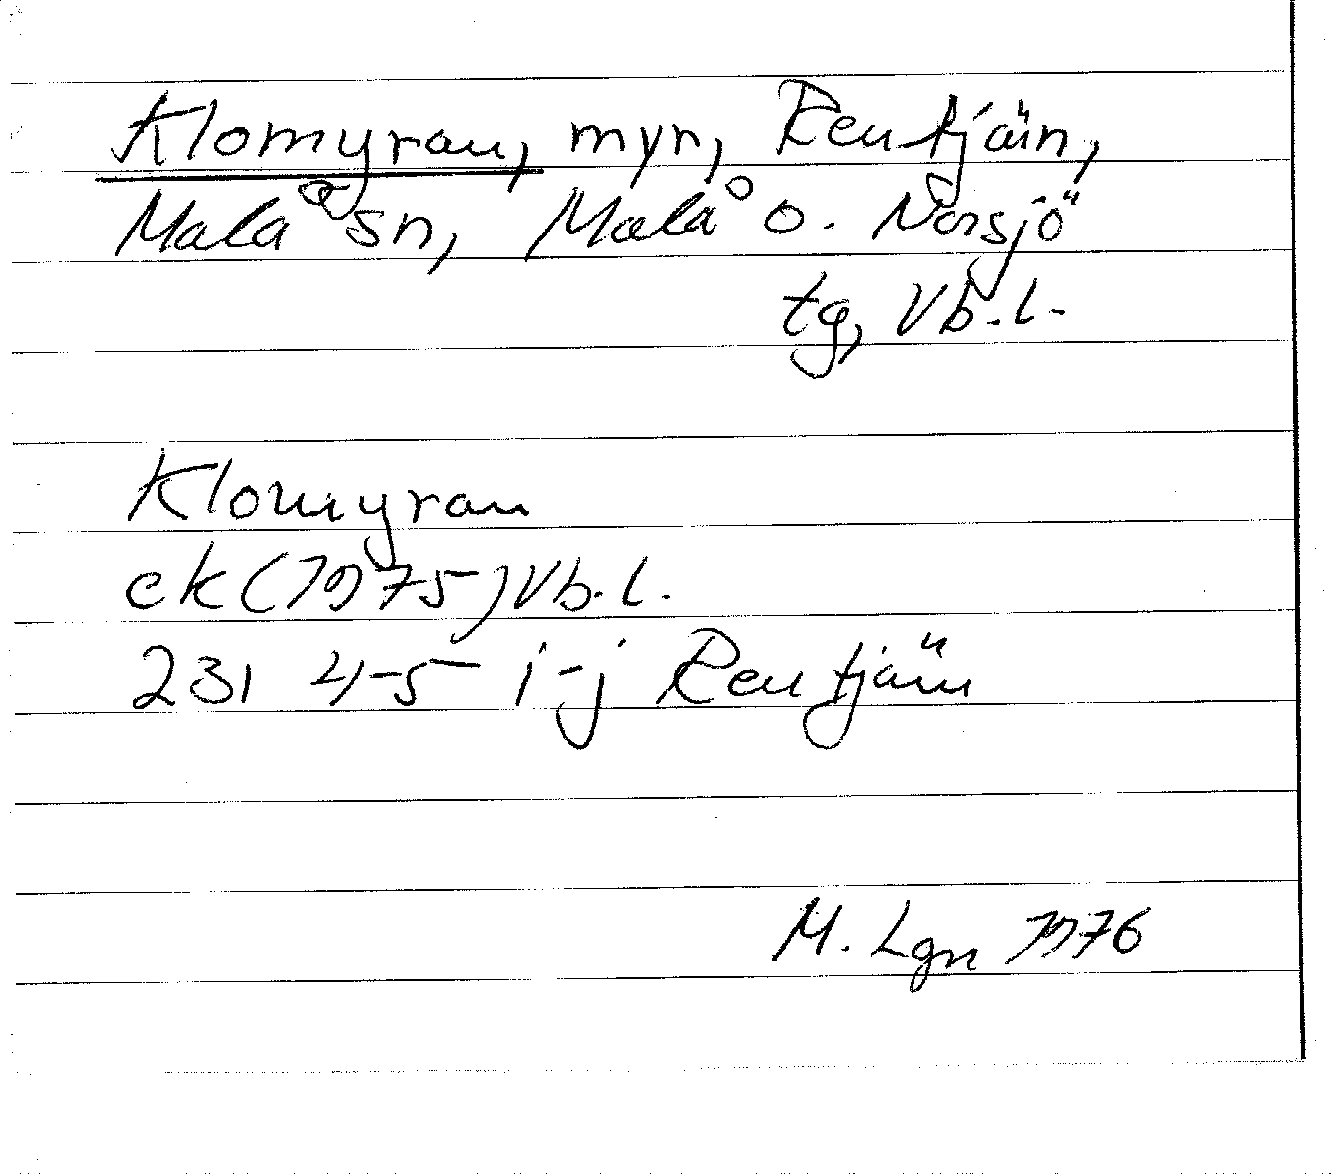 Klomyran, myr, Rentjärn,
Malå sn, Malå o. Norsjö
tg, Vb.l.
Klomyran
ek (1975) Vb.l.
231 4-5 i-j Rentjärn
M. Lgn 1976